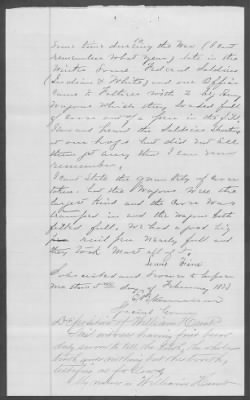 Some time during the War, (I cant
remember what year) late in the
Winter some Federal Soldiers
(Indians & Whites) and one Officer
came to Felties with 2 big Gov
Wagons which they loaded full
of corn out of a pen in the field,
I saw and heard the Soldiers Shooting
at our hogs but did not kill
them got away that I can now
remember.
I cant State the quantity of corn
taken but the Wagons Were the
largest kind and the corn Was
tramped in and the wagons both
filled full. We had a good big
rail pen Nearly full and
they took Most all of it.
Subscribed and Sworn to before
me this 5th day of February 1873
Special Comr
Deposition of William Hunt
This witness having first been
duly sworn to tell the truth, the whole
truth and nothing but the truth,
testifies as follows
My name is William Hunt